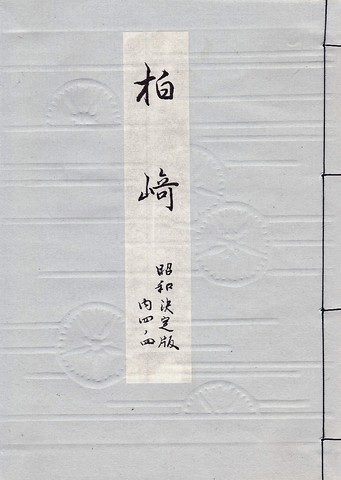 柏﨑
昭和決定版
内四ノ四